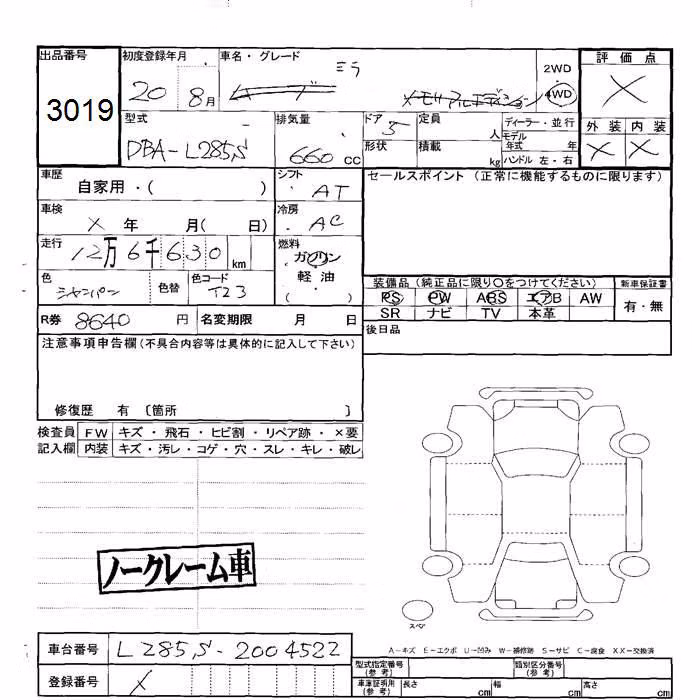 出品番号 初度登録年月 車名・グレード 評価点
3019 20 8月 ムーブ ミラ 2WD 4WD ×
メモリアルエディション
型式 排気量 ドア 定員 ディーラー・並行 外装 内装
DBA-L285S 660 CC 5 人 モデル年式 年 × ×
形状 積載 kg ハンドル 左・右
車歴 シフト セールスポイント (正常に機能するものに限ります)
自家用・( ) AT
車検 冷房
× 年 月( 日) AC
走行 燃料
12万6千630 km ガソリン
軽・油
( )
色 色替 色コード 装備品 (純正品に限り○をつけてください) 新車保証書
シャンパン T23 PS PW ABS エアB AW 有・無
SR ナビ TV 本革
R券 8640 円 名変期限 月 日 後日品
注意事項申告欄(不具合内容等は具体的に記入して下さい)
修復歴 有 〔箇所 〕
検査員 FW キズ・飛石・ヒビ割・リペア跡・×要
記入欄 内装 キズ・汚レ・コゲ・穴・スレ・キレ・破レ
ノークレーム車
スペア
A-キズ E-エクボ U-凹み W-補修跡 S-サビ C-腐食 XX-交換済
車台番号 L285S-2004522
登録番号 ×
型式指定番号(参考) 類別区分番号(参考)
車庫証明用(参考) 長さ cm 幅 cm 高さ cm